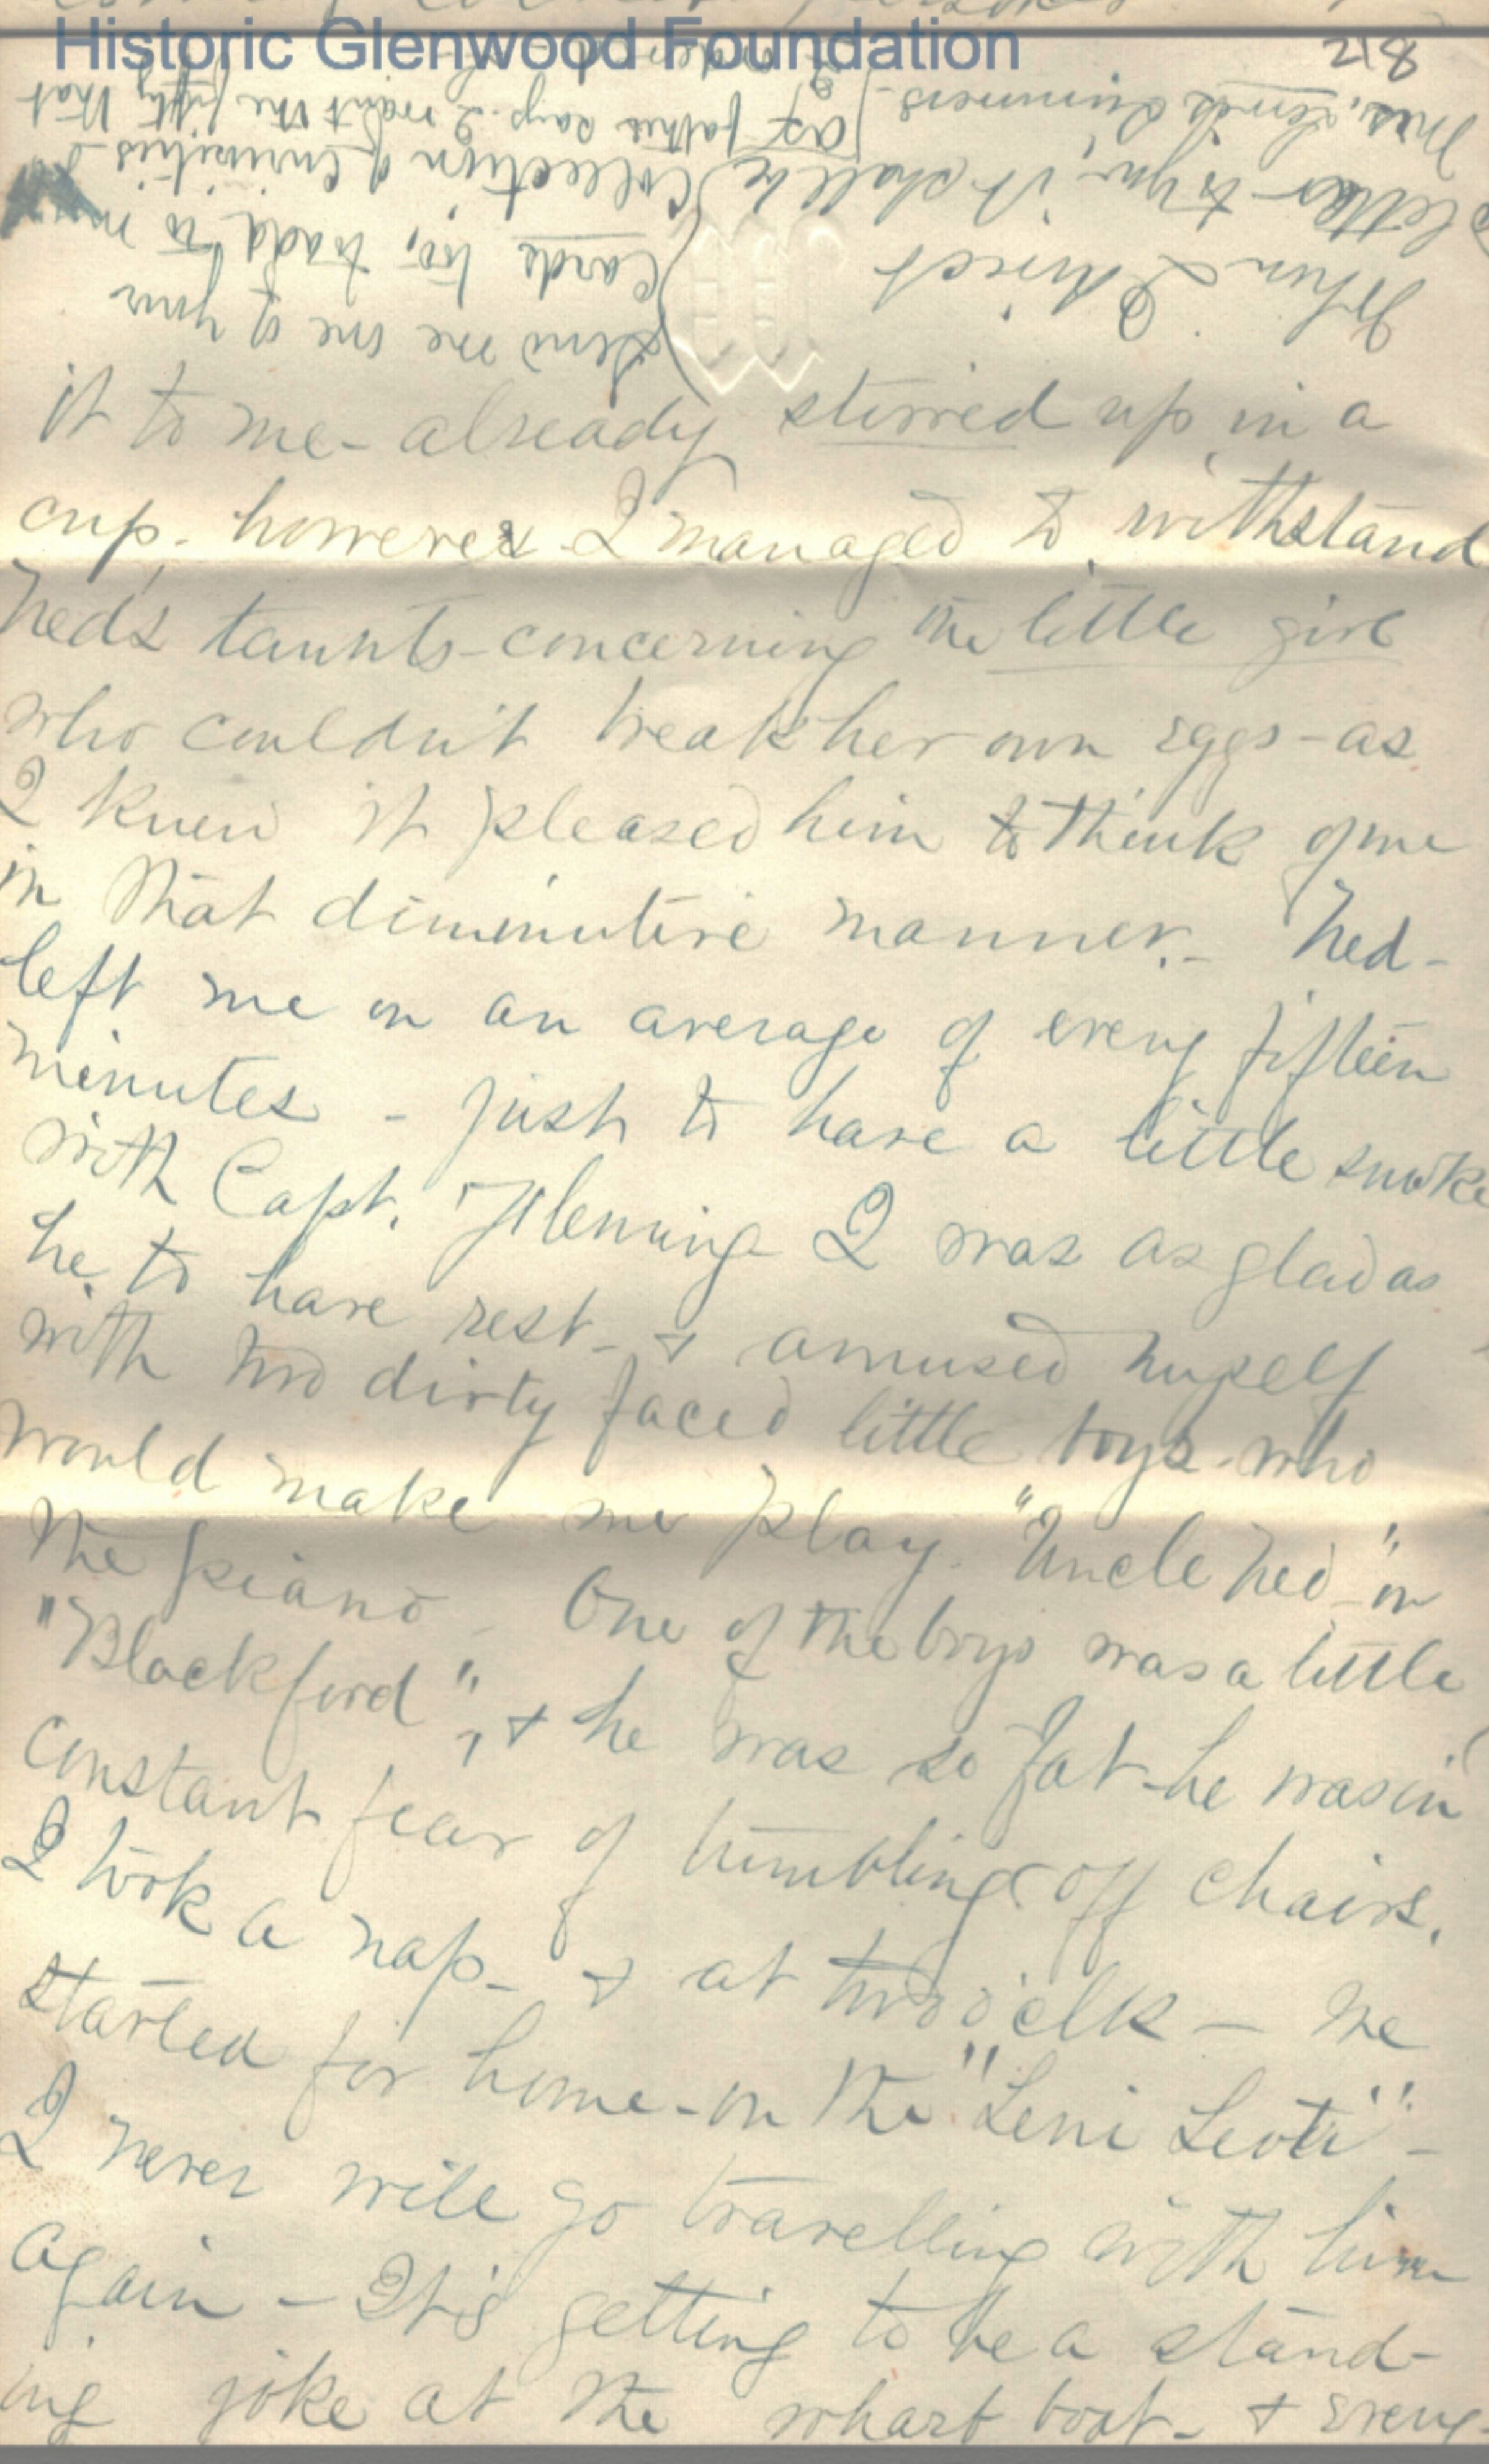 Historic Glenwood Foundation
218
When I direct
letter to you, it shall be
Mrs. Lewis Summers.
Send me one of your
cards too, to add to my
collection of curiosities
as father says. I want the fifty that
it to me - already stirred up in a
cup. however I managed to withstand
Ned's taunts - concerning the little girl
who couldn't break her own eggs - as
I knew it pleased him to think of me
in that diminutive manner. - Ned -
left me on an average of every fifteen
minutes - just to have a little smoke
with Capt. Flemming I was as glad as
he to have rest - & amused myself
with two dirty faced little boys - who
would make me play "Uncle Ned" on
the piano - One of the boys was a little
"Blackford", & he was so fat - he was in
constant fear of tumbling off chairs.
I took a nap - & at two o'clk - we
started for home - on the "Leni Leoti" -
I never will go travelling with him
again - It is getting to be a stand-
ing joke at the wharf boat - & every-